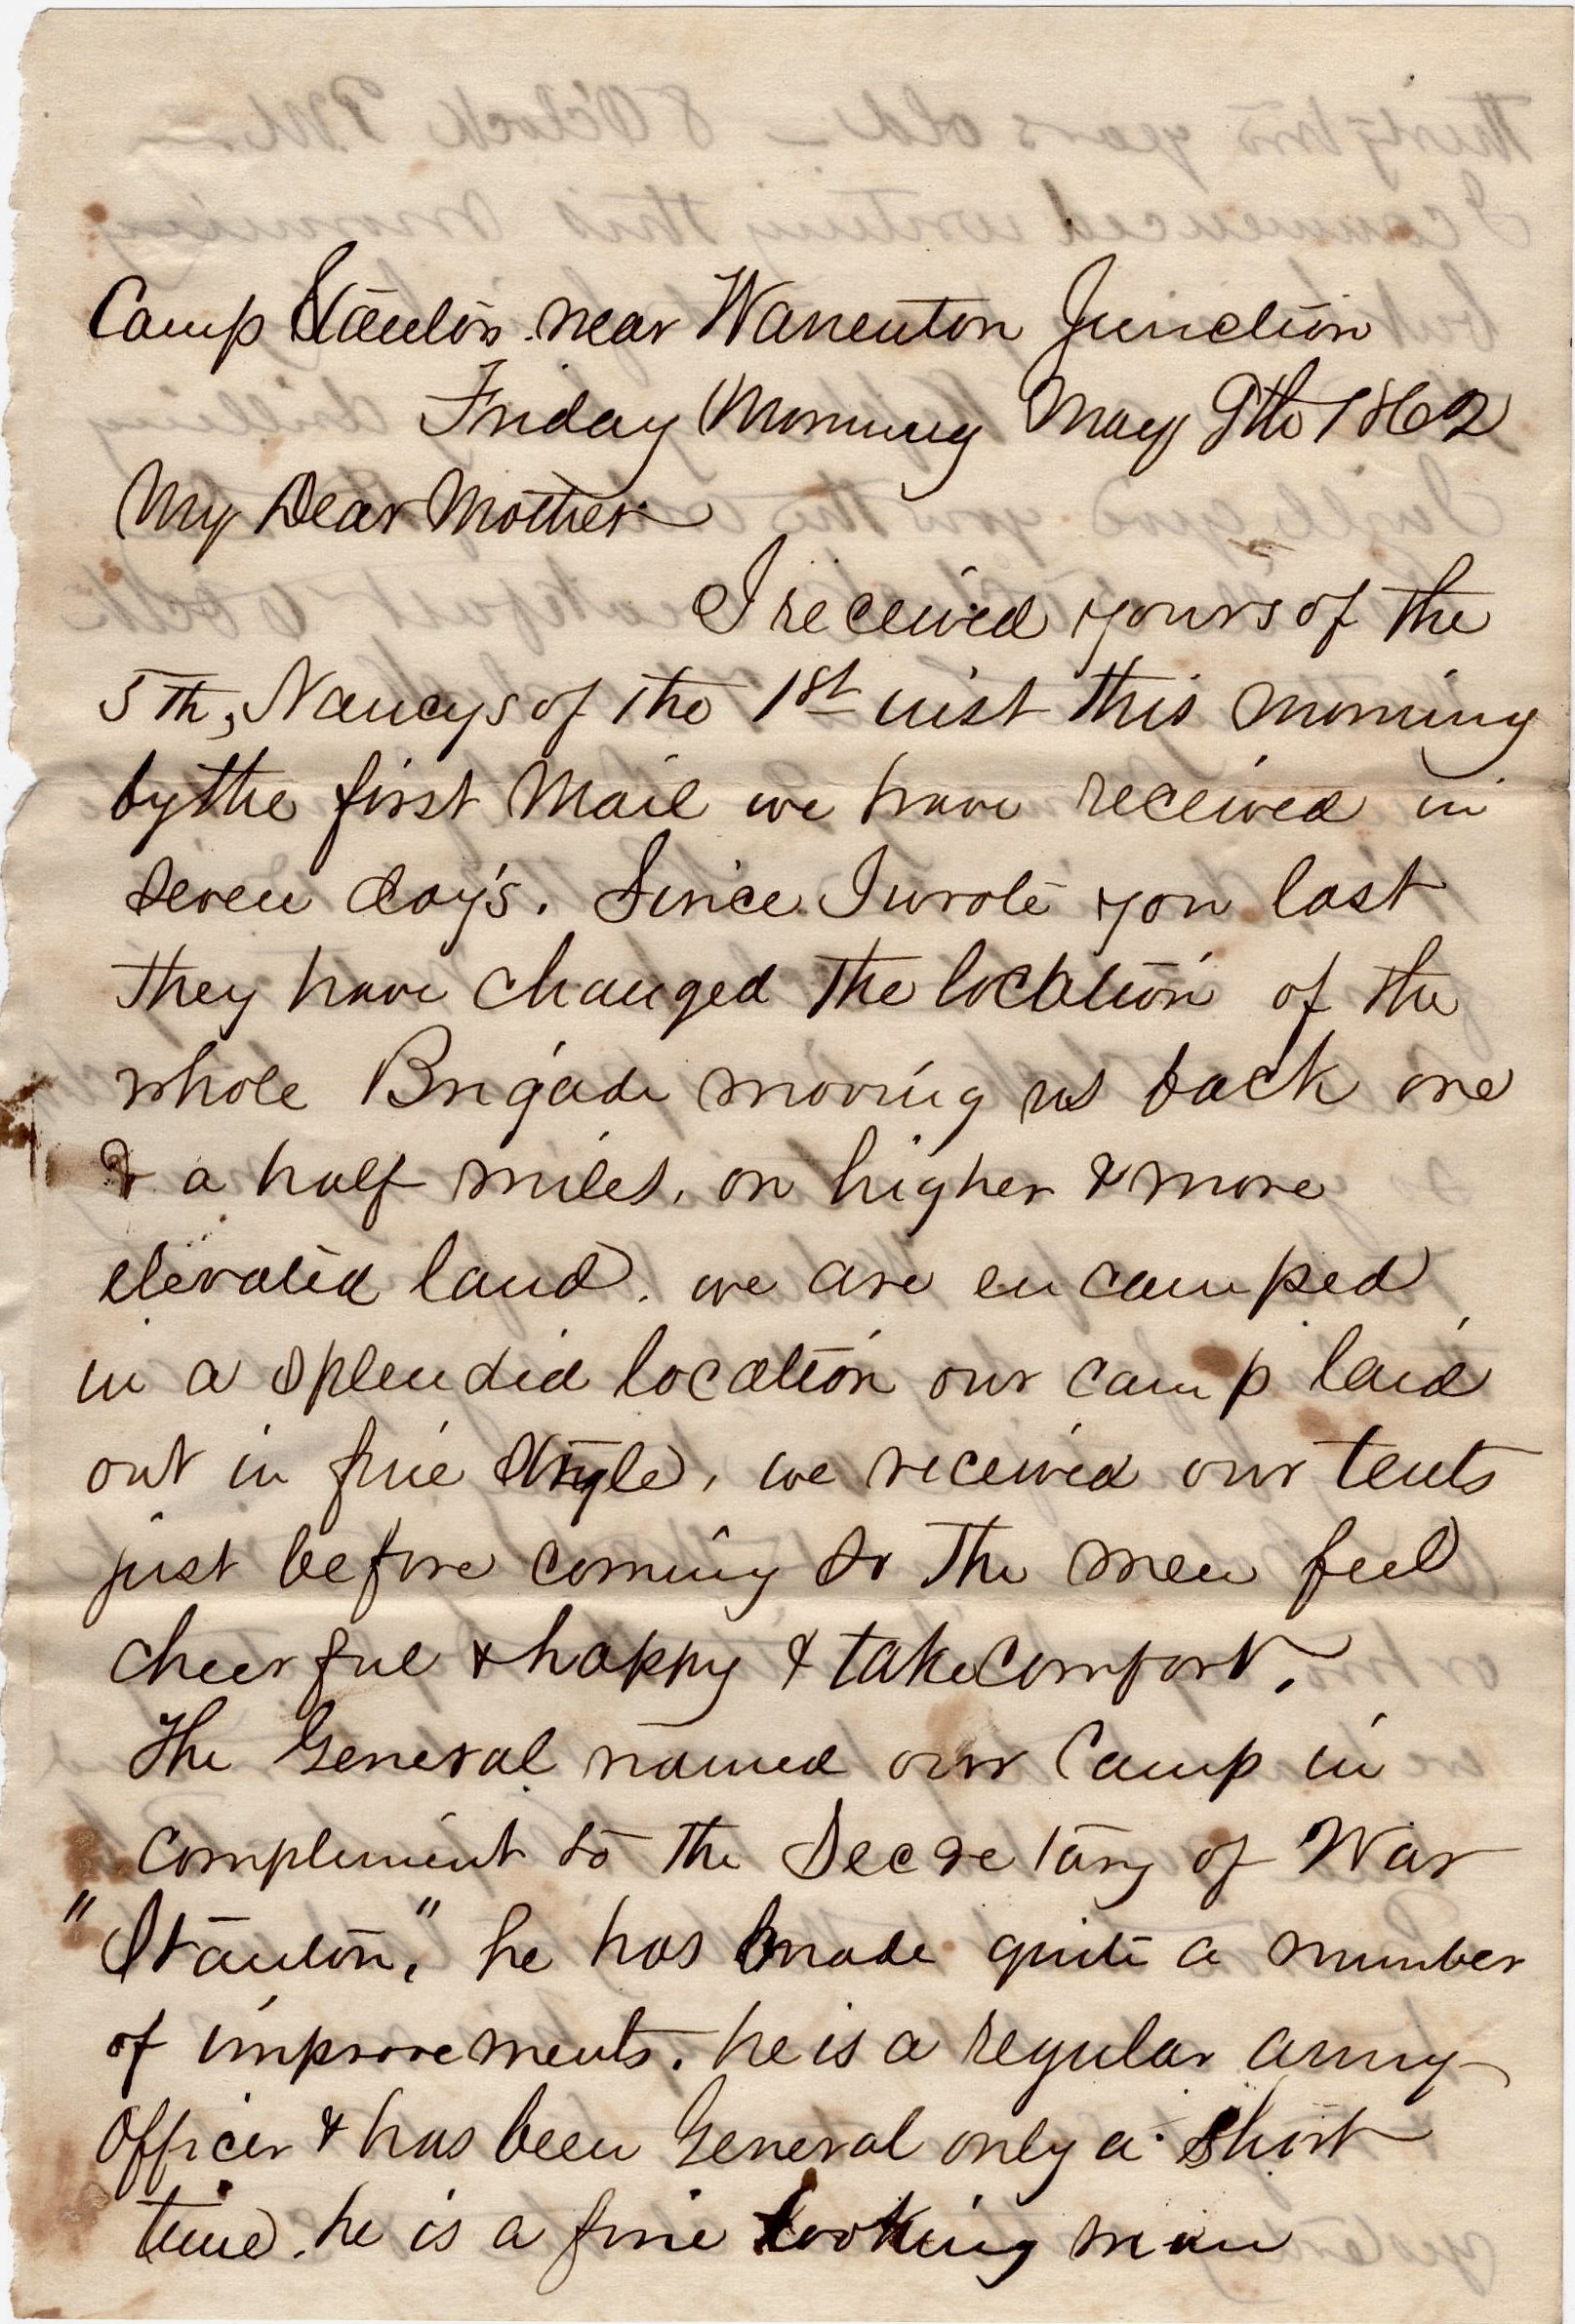 Camp Stanton near Warrenton Junction
Friday Morning May 9th 1862
My Dear Mother
I received yours of the
5th, Nancys of the 1st inst this morning
by the first Mail we have received in
seven day's. Since I wrote you last
they have changed the location of the
whole Brigade moving us back one
& a half miles, on higher & more
elevated land. we are encamped
in a splendid location our camp laid
out in fine style, we received our tents
just before coming so the men feel
cheerful & happy & take comfort.
The General named our Camp in
compliment to the Secretary of War
"Stanton," he has made quite a number
of improvements. he is a regular army
officer & has been General only a short
time. he is a fine looking man